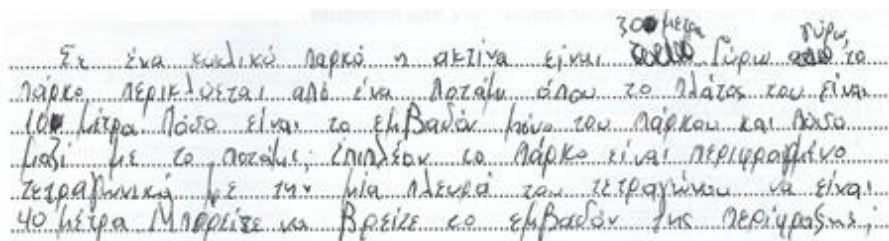 30 μέτρα Γύρω
Σε ένα κυκλικό παρκό η ακτίνα είναι Γύρω από το
πάρκο περικλύεται από ένα ποτάμι όπου το πλάτος του είναι
10 μέτρα. Πόσο είναι το εμβαδόν μόνο του πάρκου και πόσο
μαζί με το ποτάμι; Επιπλέον το πάρκο είναι περιφραγμένο
τετραγωνικά με την μία πλευρά του τετραγώνου να είναι
40 μέτρα Μπορείτε να βρείτε το εμβαδόν της περίφραξης;